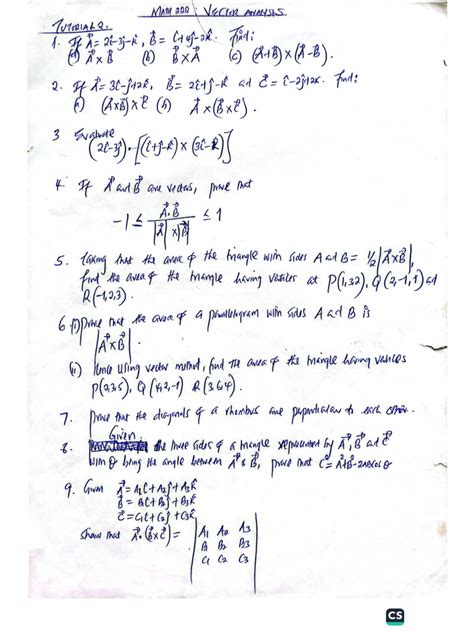 MATH 202 VECTOR ANALYSIS
TUTORIAL 2.
1. If A⃗ = 2î-3ĵ-k̂, B⃗ = î+4ĵ-2k̂. Find:
(a) A⃗ x B⃗ (b) B⃗ x A⃗ (c) (A⃗+B⃗) x (A⃗-B⃗).
2. If A⃗ = 3î-ĵ+2k, B⃗ = 2î+ĵ-k and C⃗ = î-2ĵ+2k. Find:
(a) (A⃗xB⃗) x C⃗ (b) A⃗ x (B⃗xC⃗).
3 Evaluate
(2î-3ĵ) • [(î+ĵ-k̂) x (3î-k̂)]
4. If A⃗ and B⃗ are vectors, prove that
-1 ≤ A⃗•B⃗ / |A⃗| x |B⃗| ≤ 1
5. Taking that the area of the triangle with sides A and B = 1/2 |A⃗xB⃗|,
find the area of the triangle having vertices at P(1,3,2), Q(2,-1,1) and
R(-1,2,3).
6 (i) Prove that the area of a parallelogram with sides A and B is
|A⃗xB⃗|
(ii) Hence using vector method, find the area of the triangle having vertices
P(2,3,5), Q(4,2,-1) R(3,6,4).
7. Prove that the diagonals of a rhombus are perpendicular to each other.
Given
8. the three sides of a triangle represented by A⃗, B⃗ and C⃗
with θ being the angle between A⃗ & B⃗, prove that C²=A²+B²-2ABcosθ
9. Given A⃗ = A₁î+A₂ĵ+A₃k̂
B⃗ = B₁î+B₂ĵ+B₃k̂
C⃗ = C₁î+C₂ĵ+C₃k̂
Show that A⃗•(B⃗xC⃗) = | A₁ A₂ A₃ |
| B₁ B₂ B₃ |
| C₁ C₂ C₃ |
CS